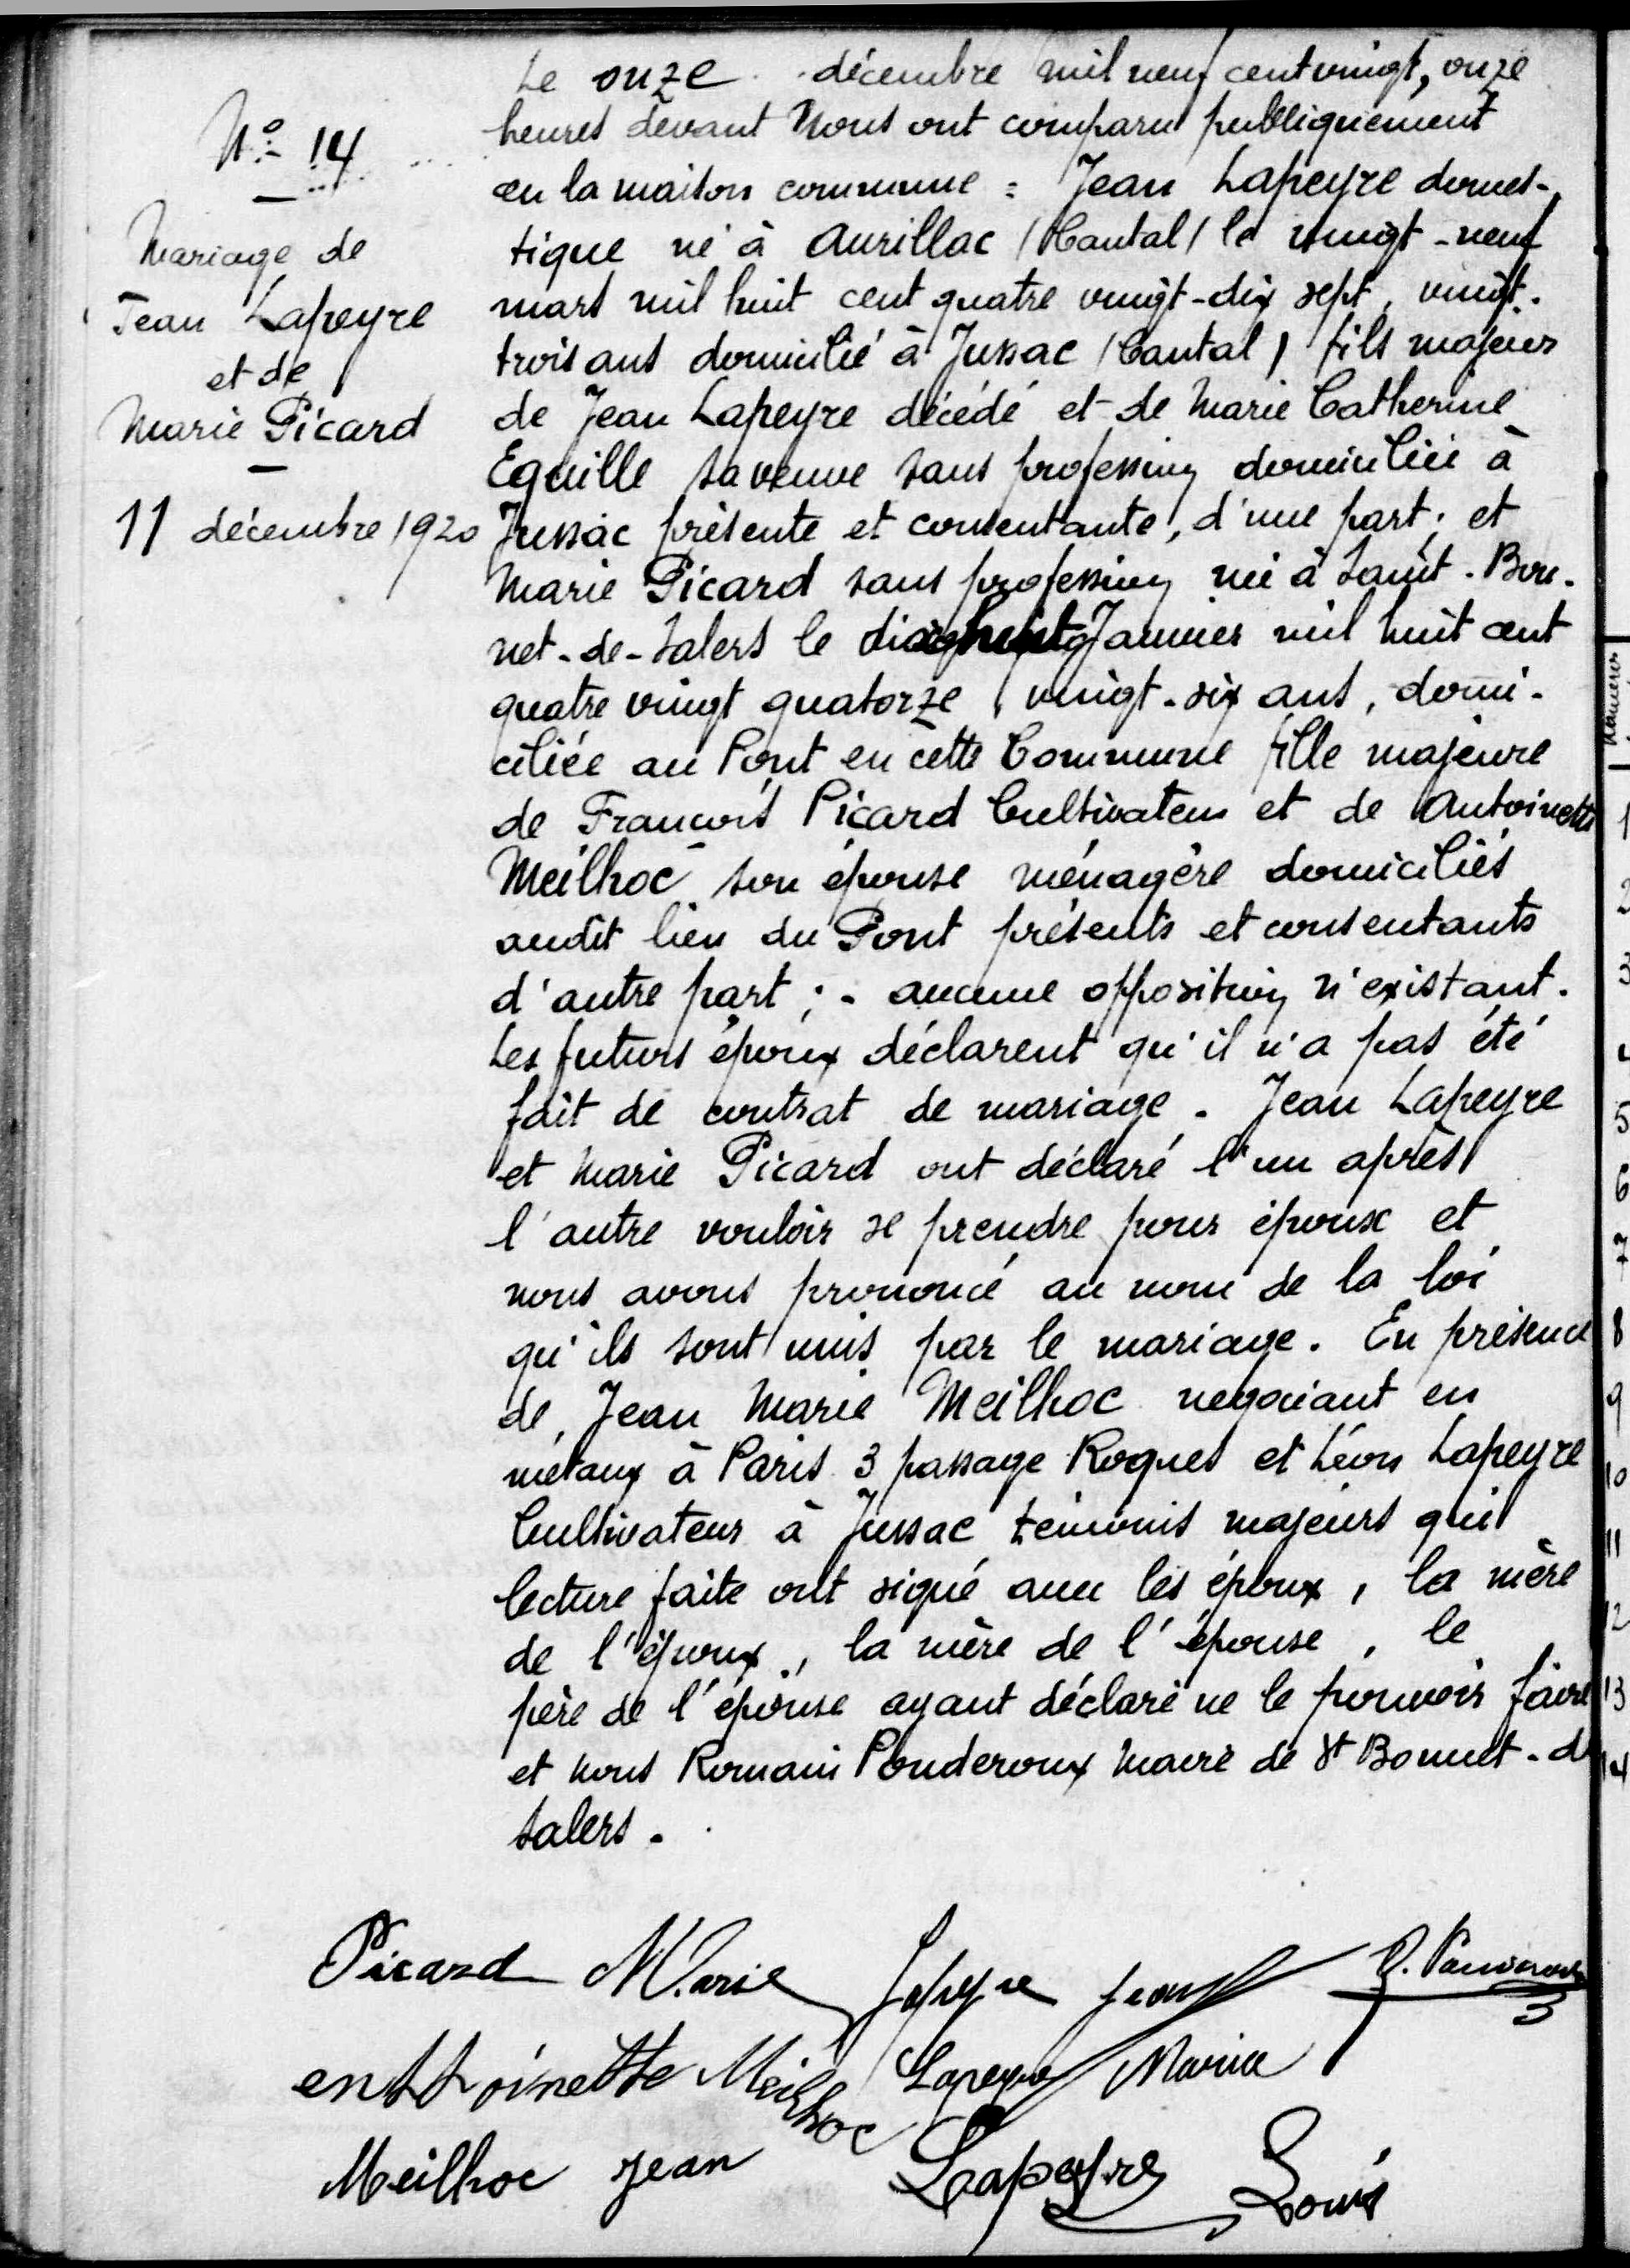 N° 14
Mariage de
Jean Lapeyre
et de
Marie Picard
11 décembre 1920
Le onze décembre mil neuf cent vingt, onze
heures devant Nous ont comparu publiquement
en la maison commune = Jean Lapeyre domes-
tique né à Aurillac (Cantal) le vingt-neuf
mars mil huit cent quatre vingt-dix sept, vingt-
trois ans domicilié à Jussac (Cantal) fils majeur
de Jean Lapeyre décédé et de Marie Catherine
Equille sa veuve sans profession domiciliée à
Jussac présente et consentante, d'une part; et
Marie Picard sans profession née à Saint-Bon-
net-de-Salers le Janvier mil huit cent
quatre vingt quatorze, vingt-six ans, domi-
ciliée au Pont en cette Commune fille majeure
de François Picard Cultivateur et de Antoinette
Meilhoc son épouse ménagère domiciliés
audit lieu du Pont présents et consentants
d'autre part; - aucune opposition n'existant.
Les futurs époux déclarent qu'il n'a pas été
fait de contrat de mariage. Jean Lapeyre
et Marie Picard ont déclaré l'un après
l'autre vouloir se prendre pour époux et
nous avons prononcé au nom de la loi
qu'ils sont unis par le mariage. En présence
de Jean Marie Meilhoc negociant en
métaux à Paris 3 passage Roques et Léon Lapeyre
Cultivateur à Jussac témoins majeurs qui
lecture faite ont signé avec les époux, la mère
de l'époux, la mère de l'épouse, le
père de l'épouse ayant déclaré ne le pouvoir faire
et nous Romain Ponderoux Maire de St Bonnet-de
Salers.
Picard Marie Lapeyre Jean
enttoinette Meilhoc Lapeyre
Meilhoc Jean Lapeyre Louis